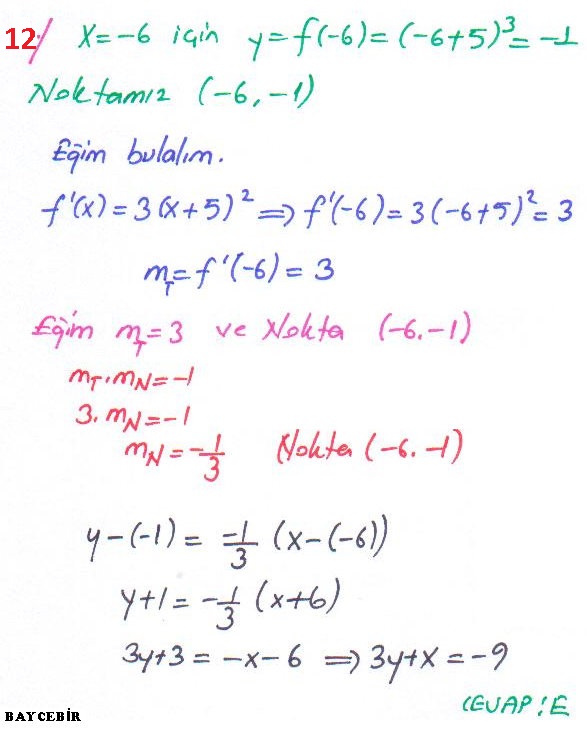 12/ x=-6 için y=f(-6)=(-6+5)³=-1
Noktamız (-6,-1)
Eğim bulalım.
f'(x)=3(x+5)²⇒f'(-6)=3(-6+5)²=3
m_T=f'(-6)=3
Eğim m_T=3 ve Nokta (-6.-1)
m_T.m_N=-1
3.m_N=-1
m_N=-1/3 Nokta (-6.-1)
y-(-1)=-1/3 (x-(-6))
y+1=-1/3 (x+6)
3y+3=-x-6 ⇒3y+x=-9
CEVAP:E
BAYCEBİR